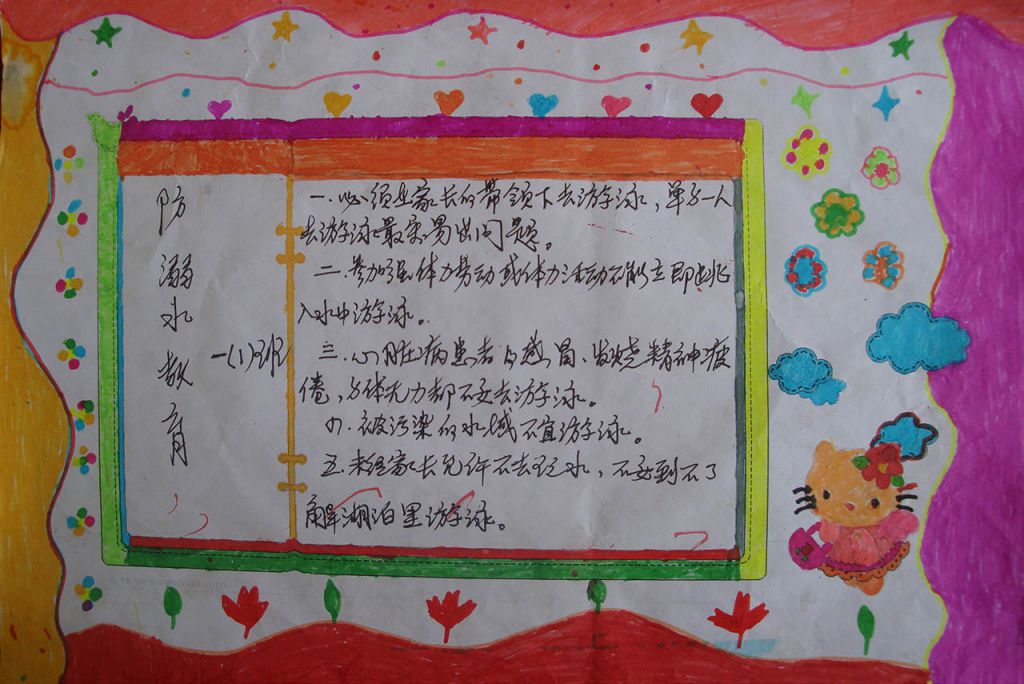 防溺水教育
一(1)班
一.必须在家长的带领下去游泳，单independent一人
去游泳最容易出问题。
二.参加强体力劳动或体力活动不能立即跳
入水中游泳。
三.心脏病患者以感冒、发烧精神疲
倦，身体无力都不要去游泳。
四.被污染的水域不宜游泳。
五.未经家长允许不去玩水，不要到不了
解湖泊里游泳。